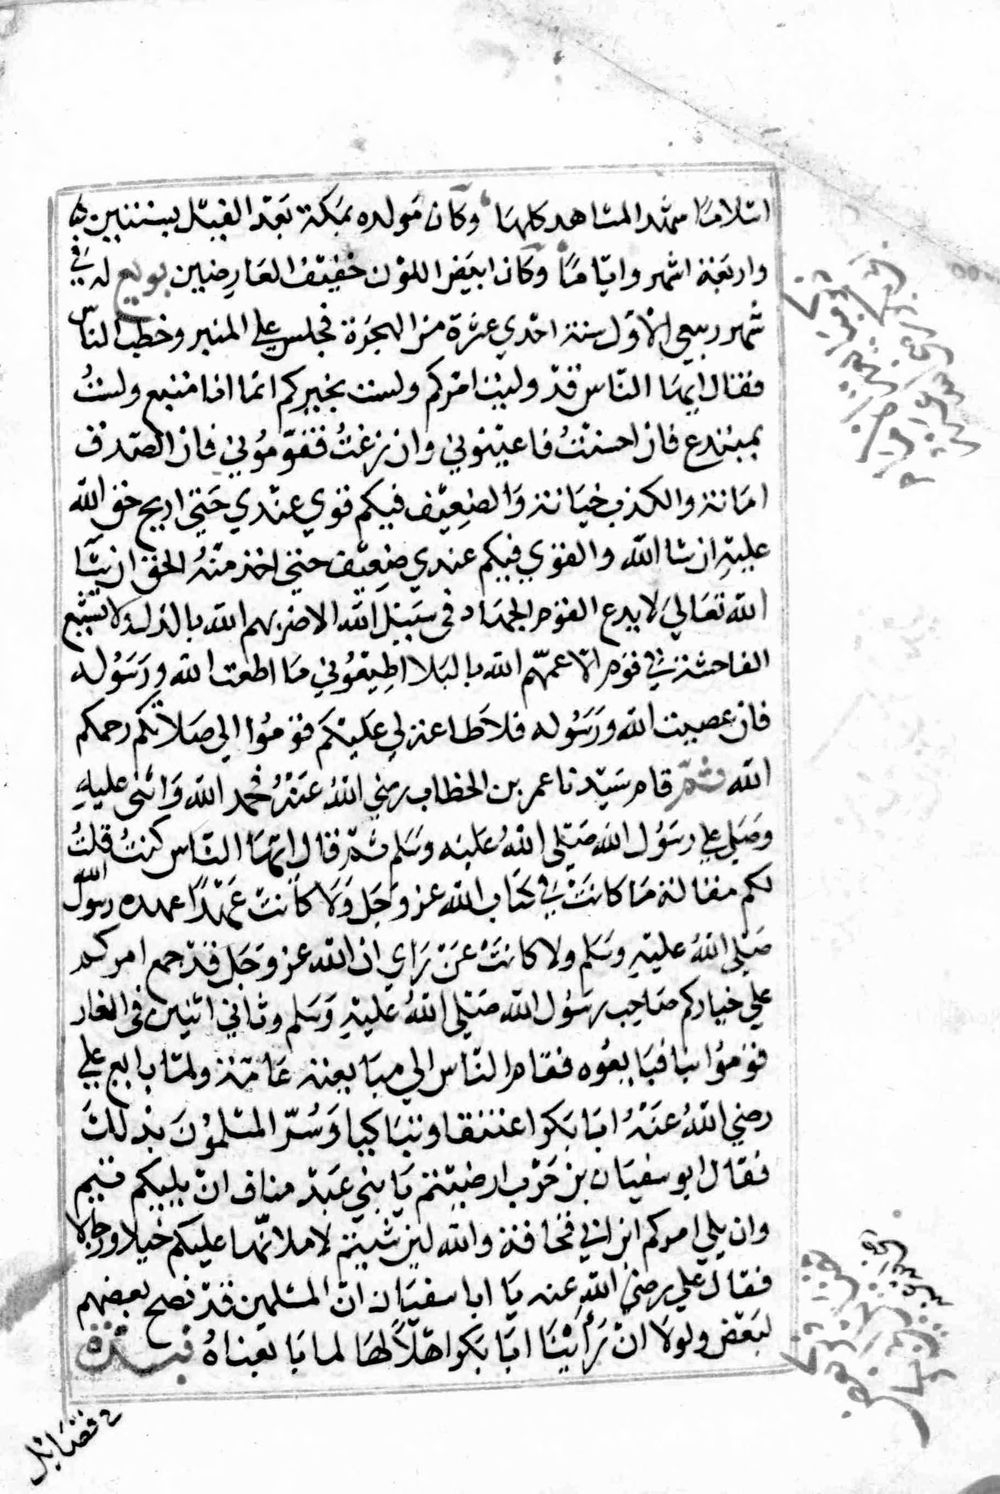 اسلاما شهد المشاهد كلها وكان مولده بمكة بعد الفيل بسنتين
واربعة اشهر واياما وكان ابيض اللون خفيف العارضين بويع له في
شهر ربيع الاول سنة احدي عشرة من الهجرة فجلس علي المنبر وخطب الناس
فقال ايها الناس قد وليت امركم ولست بخيركم انما انا متبع ولستُ
بمبتدع فان احسنتُ فاعينوني وان زغتُ فقوّموُني فان الصدق
امانة والكذب خيانة والضعيف فيكم قوي عندي حتي اريح حق الله
عليه ان شا الله والقوي فيكم عندي ضعيف حتي اخذ منه الحق ان شا
الله تعالي لا يدع القوم الجهاد في سبيل الله الا ضربهم الله بالذل ولا تشيع
الفاحشة في قوم الا عمهم الله بالبلا اطيعوني ما اطعت الله ورسوله
فان عصيت الله ورسوله فلا طاعة لي عليكم قوموا الي صلاتكم رحمكم
الله ثم قام سيدنا عمر بن الخطاب رضي الله عنه فحمد الله واثني عليه
وصلي علي رسول الله صلي الله عليه وسلم ثم قال ايها الناس كنتُ قلتُ
لكم مقالة ما كانت في كتاب الله عز وجل ولا كانت عهدًا عهده رسول الله
صلي الله عليه وسلم ولا كانت عن راي ان الله عز وجل قد جمع امركم
علي خياركم صاحب رسول الله صلي الله عليه وسلم وثاني اثنين في الغار
قوموا بنا فبايعوه فقام الناس الي مبايعته عامة ولما بايع علي
رضي الله عنه ابا بكر اعتنقا وتباكيا وسُرّ المسلمون بذلك
فقال ابو سفيان بن حرب ارضيتم يا بني عبد مناف ان يليكم تيم
وان يلي امركم ابن ابي قحافة والله لين شيتم لاملانّها عليكم خيلا ورجلا
فقال علي رضي الله عنه يا ابا سفيان ان المسلمين قد نصح بعضهم
لبعض ولولا ان راينا ابا بكر اهلاً لها لما بايعناه
فضايل